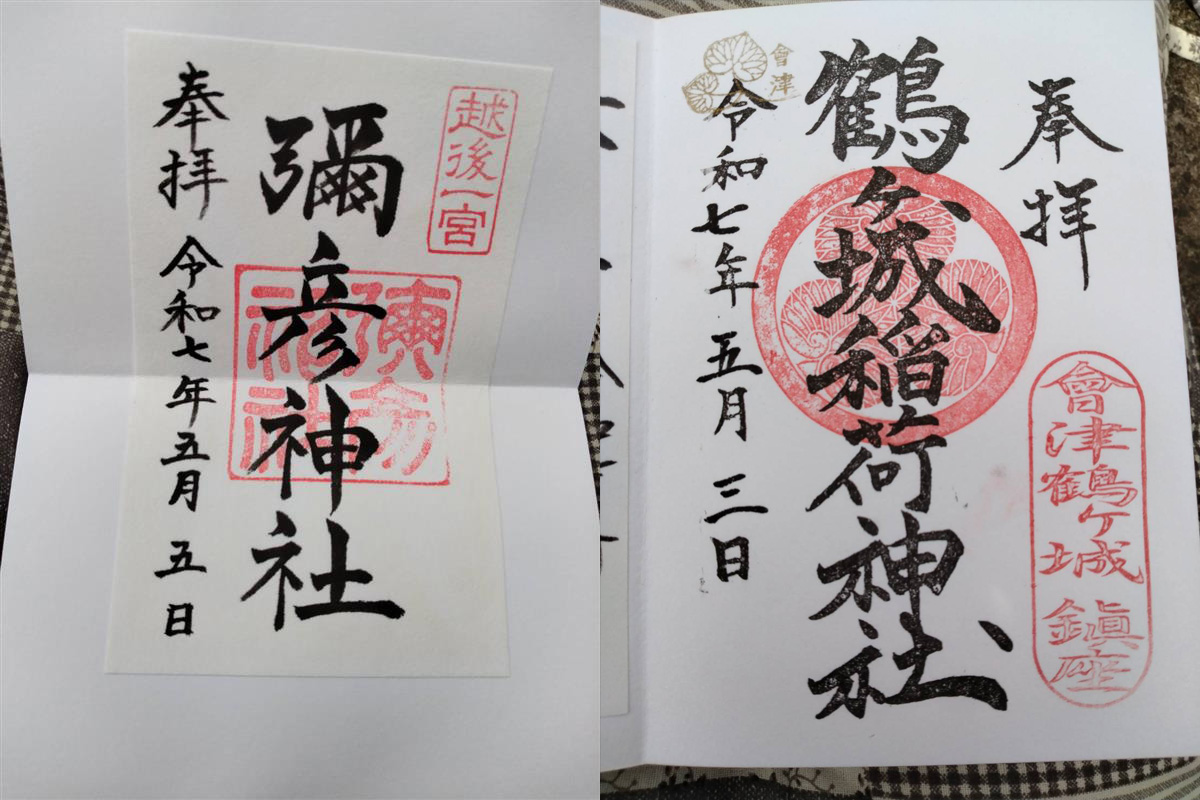 越後一宮
彌彦神社
彌彦神社
奉拝 令和七年五月五日
奉拝
會津鶴ヶ城鎮座
鶴ヶ城稲荷神社
會津
令和七年五月三日